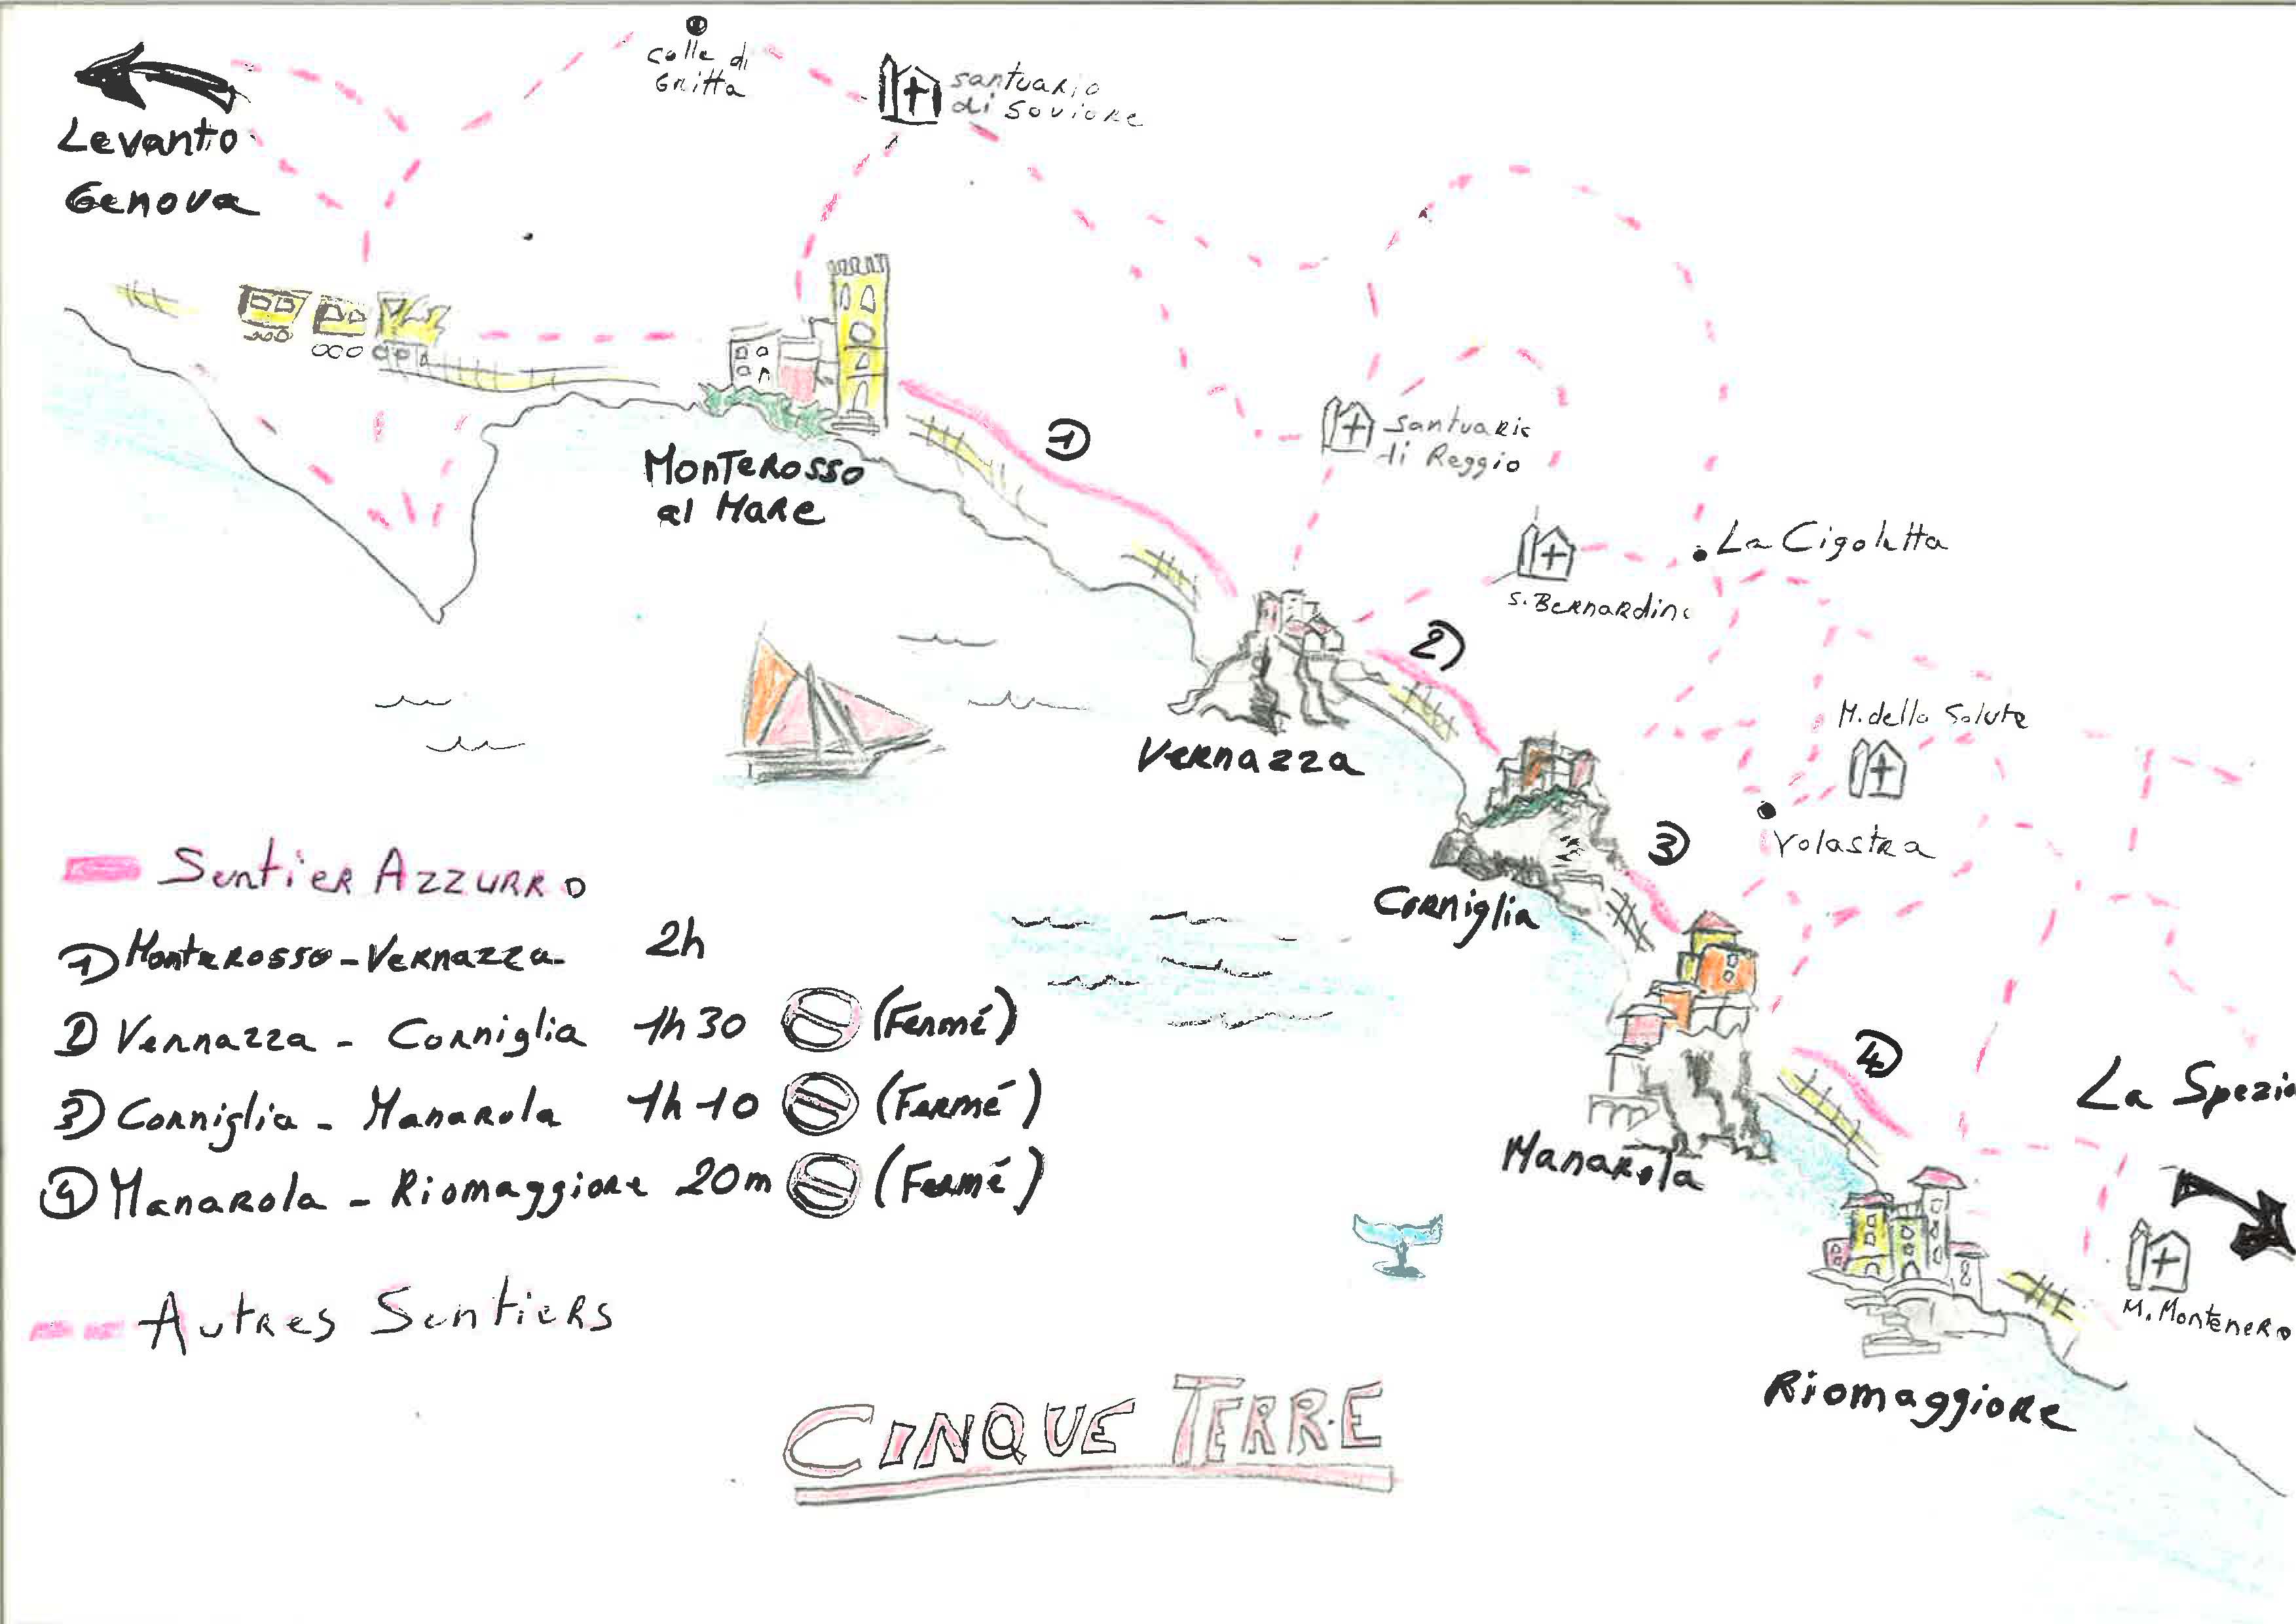 Colle di
Gritta
Santuario
di Soviore
Levanto
Genova
1
Monterosso
al Mare
Santuario
di Reggio
La Cigoletta
S. Bernardino
2
M. della Salute
Vernazza
3
Volastra
Corniglia
Sentier Azzurro
1 Monterosso - Vernazza 2h
2 Vernazza - Corniglia 1h30 (Fermé)
3 Corniglia - Manarola 1h10 (Fermé)
4 Manarola - Riomaggiore 20m (Fermé)
Autres Sentiers
4
La Spezia
Manarola
M. Montenero
Riomaggiore
Cinque Terre